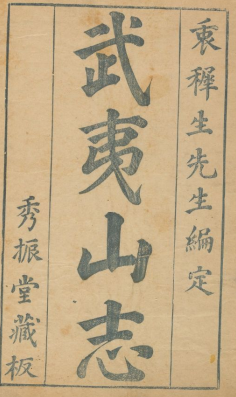 衷穉生先生編定
武夷山志
秀振堂藏板